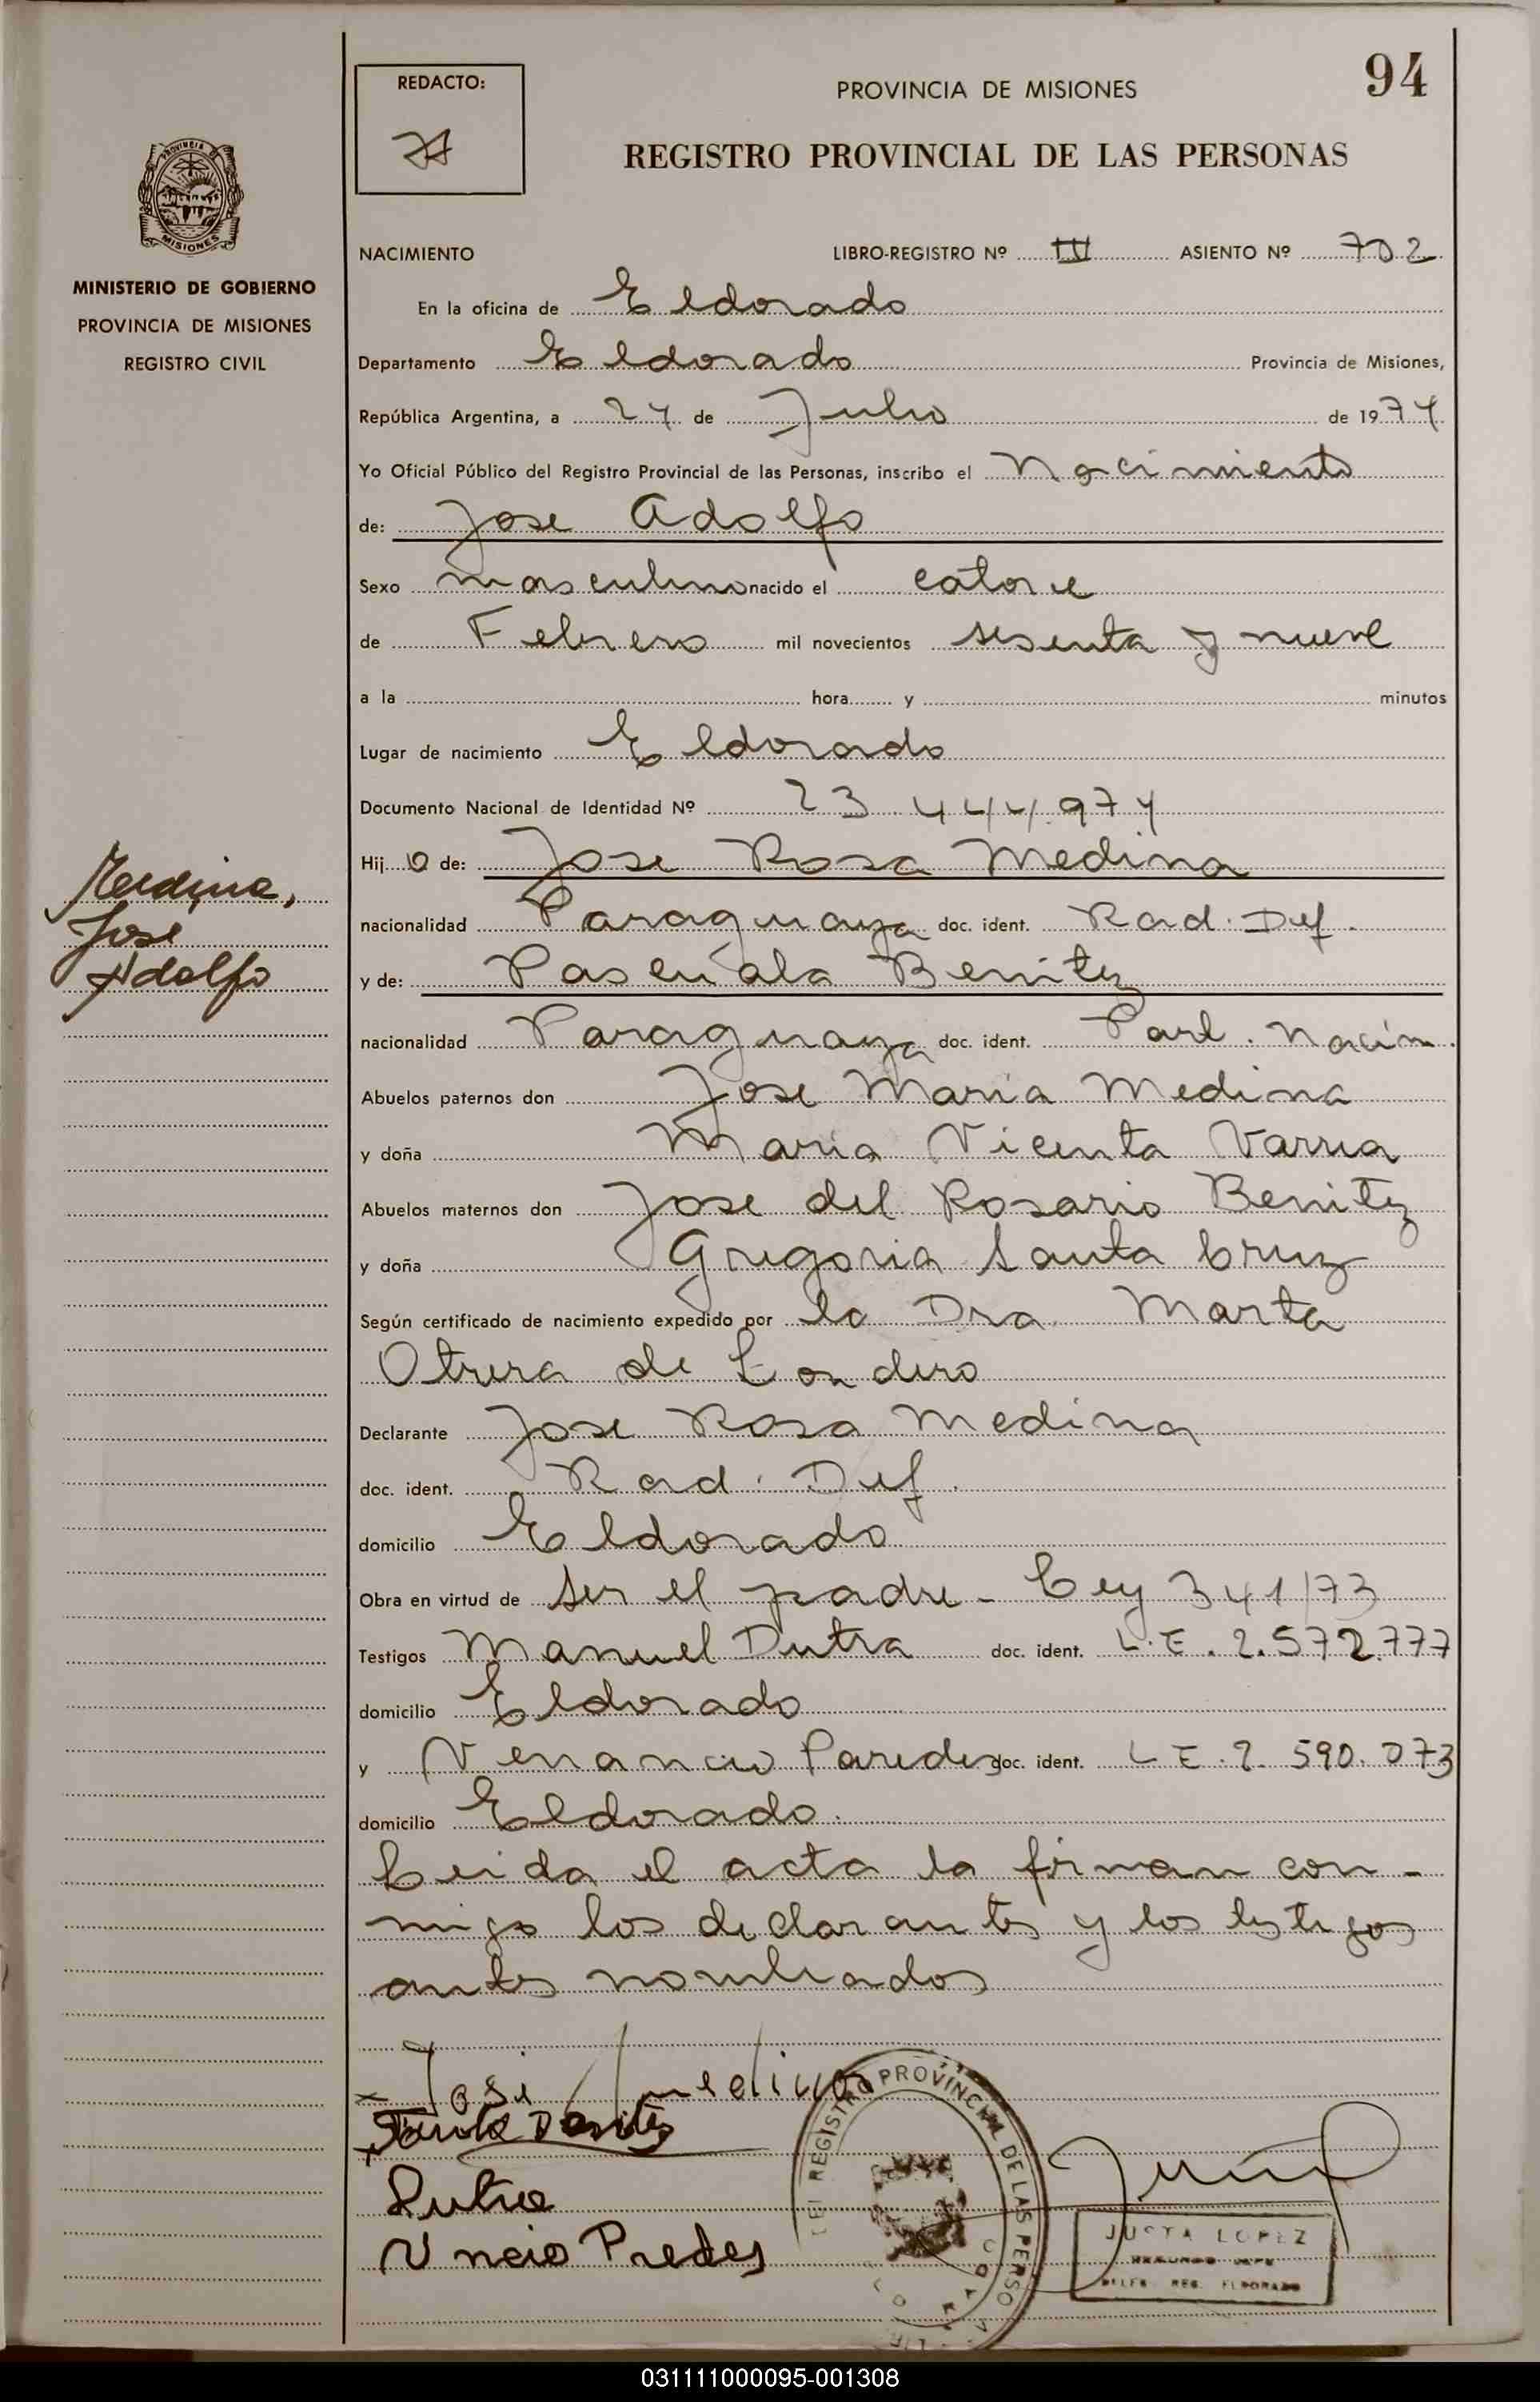 94
REDACTO:
PROVINCIA DE MISIONES
REGISTRO PROVINCIAL DE LAS PERSONAS
MISIONES
MINISTERIO DE GOBIERNO
PROVINCIA DE MISIONES
REGISTRO CIVIL
NACIMIENTO LIBRO-REGISTRO Nº III ASIENTO Nº 702
En la oficina de Eldorado
Departamento Eldorado Provincia de Misiones,
República Argentina, a 24 de Julio de 1974
Yo Oficial Público del Registro Provincial de las Personas, inscribo el Nacimiento
de: Jose Adolfo
Sexo masculino nacido el catorce
de Febrero mil novecientos sesenta y nueve
a la hora y minutos
Lugar de nacimiento Eldorado
Documento Nacional de Identidad Nº 23.444.974
Medina,
Jose
Adolfo
Hijo de: Jose Rosa Medina
nacionalidad Paraguaya doc. ident. Rad. Def.
y de: Pascuala Benitez
nacionalidad Paraguaya doc. ident. Part. Nacim.
Abuelos paternos don Jose Maria Medina
y doña Maria Vicenta Varria
Abuelos maternos don Jose del Rosario Benitez
y doña Gregoria Santa Cruz
Según certificado de nacimiento expedido por la Dra. Marta
Otrera de Londero
Declarante Jose Rosa Medina
doc. ident. Rad. Def.
domicilio Eldorado
Obra en virtud de ser el padre - Ley 341/73
Testigos Manuel Dutra doc. ident. L.E. 2.572.777
domicilio Eldorado
y Venancio Paredes doc. ident. L E. 2. 590. 073
domicilio Eldorado.
Leida el acta la firman con-
migo los declarantes y los testigos
antes nombrados
x Jose medina
Dutra
V ncio Predes
REGISTRO PROVINCIAL DE LAS PERSO
JUSTA LOPEZ
SEGUNDO JEFE
DELEG. REG. ELDORADO
031111000095-001308